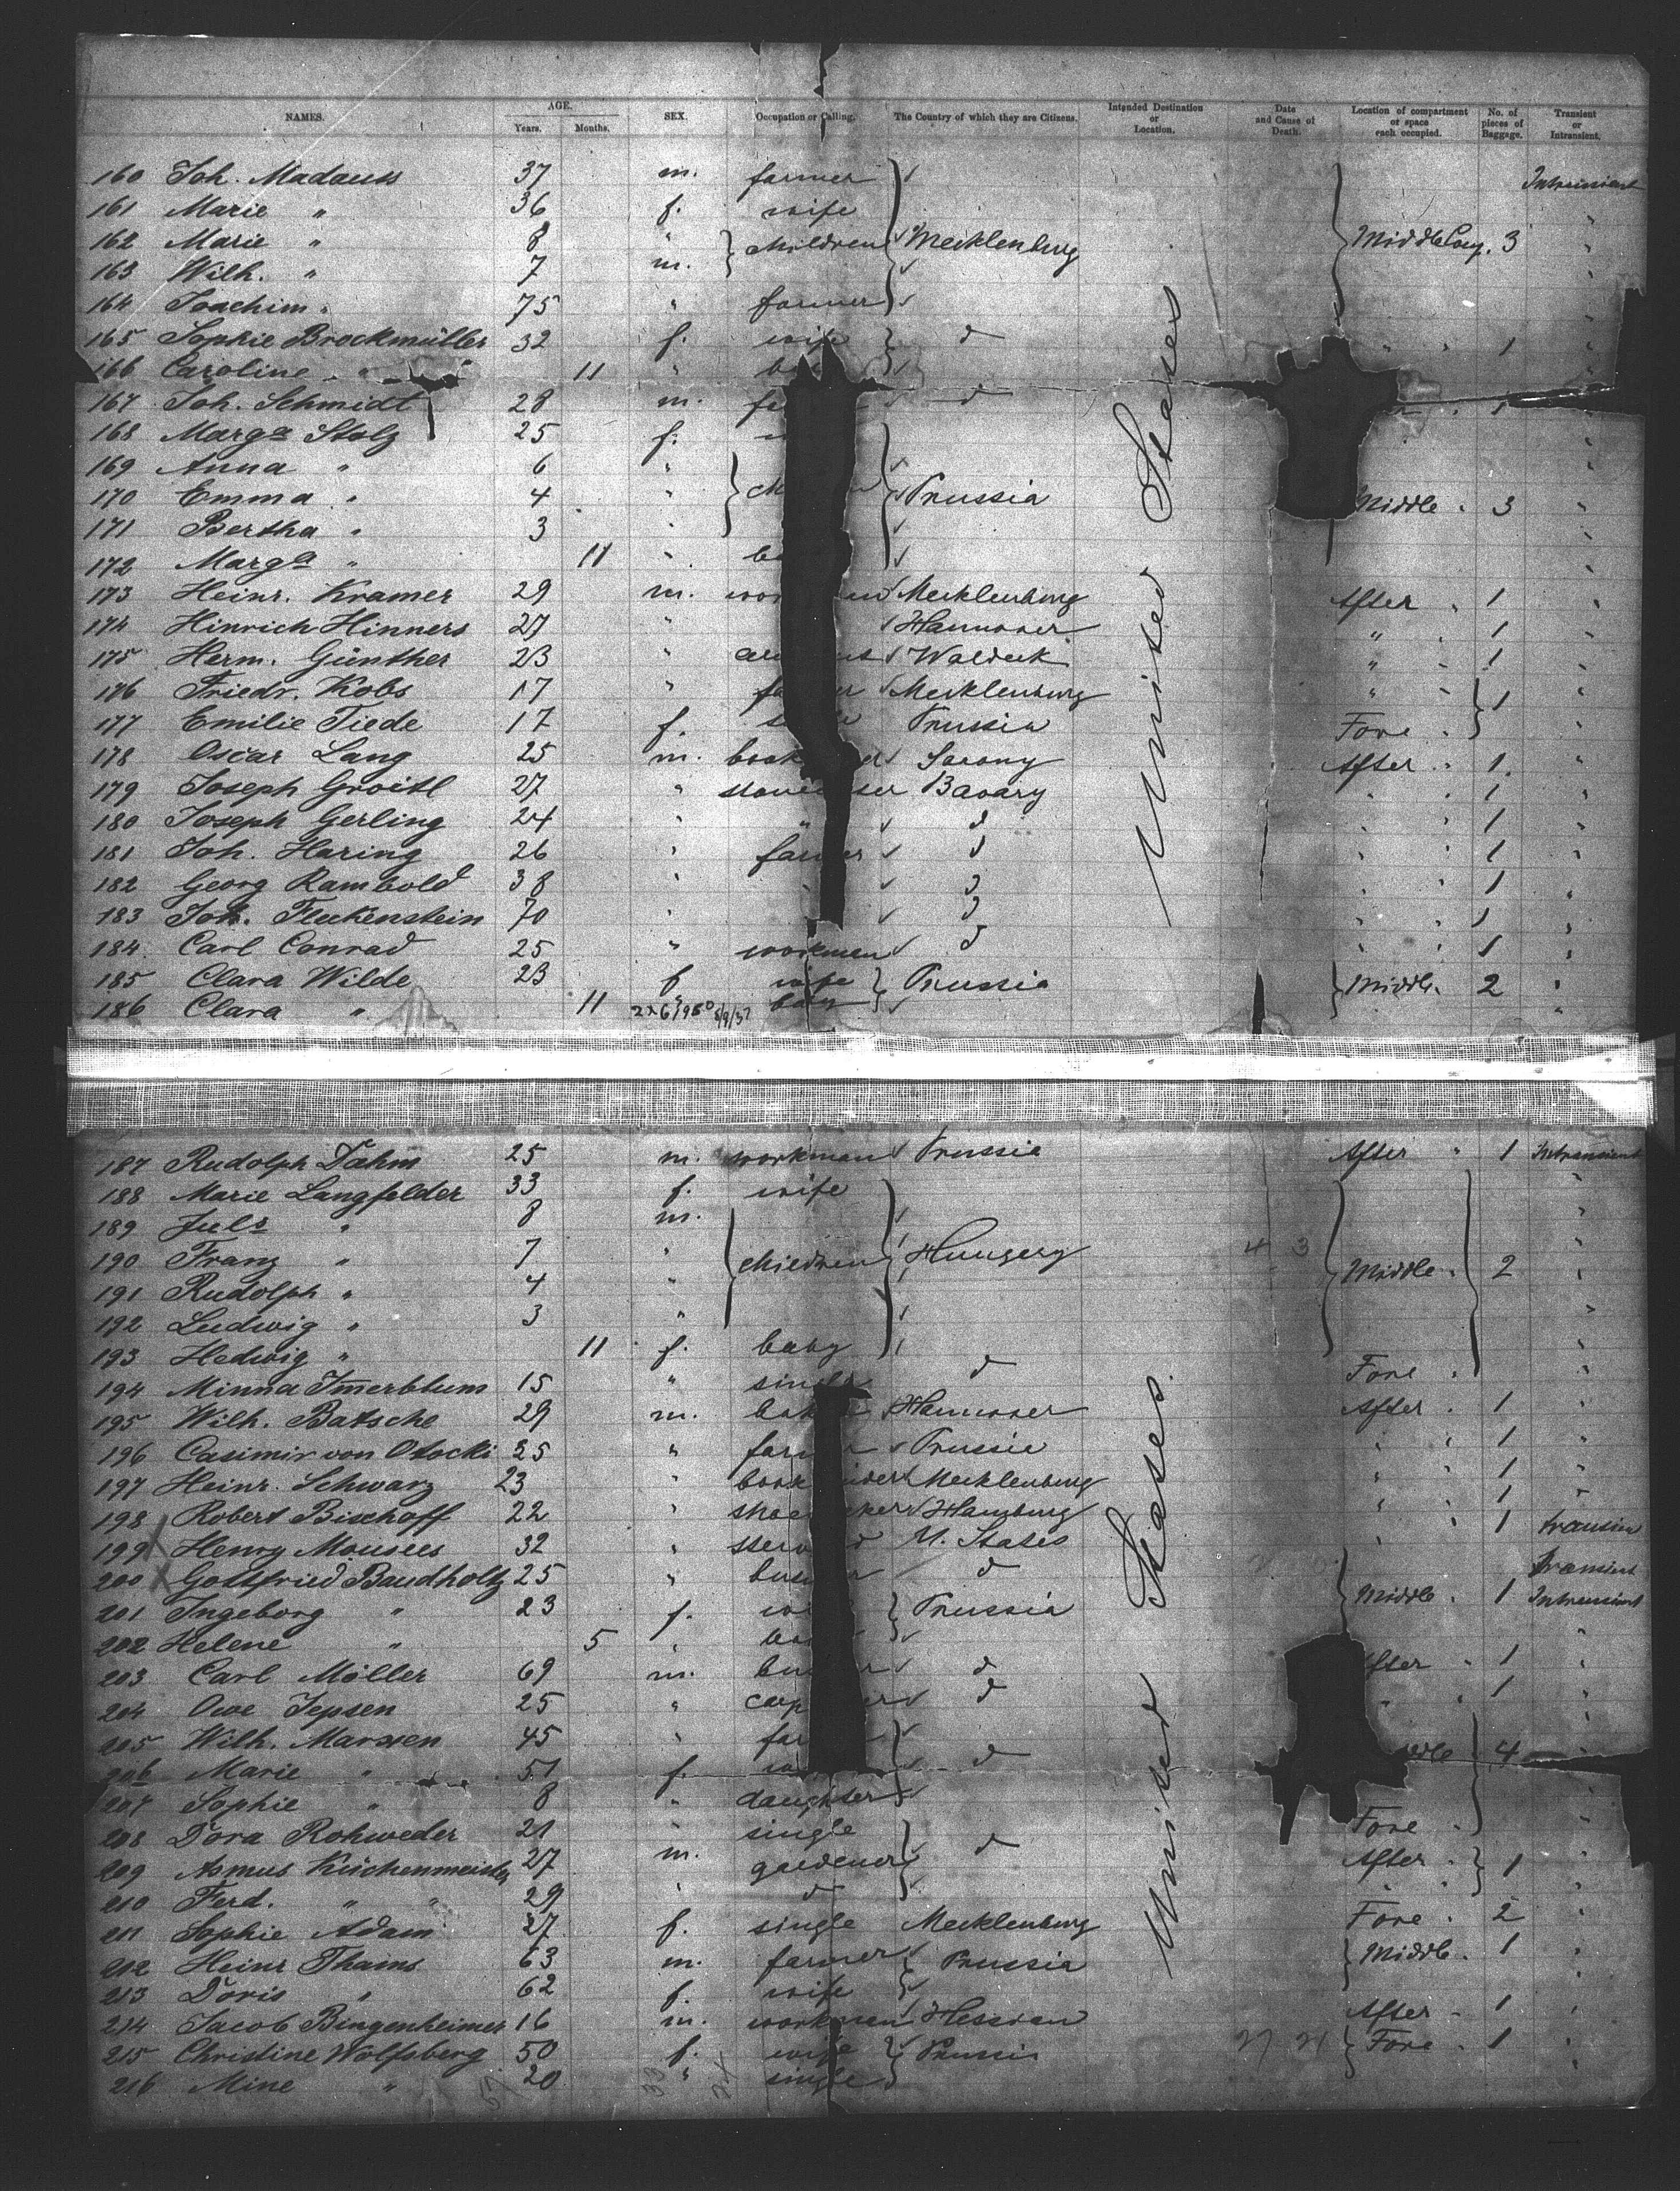 NAMES. AGE. Years. Months. SEX. Occupation or Calling. The Country of which they are Citizens. Intended Destination or Location. Date and Cause of Death. Location of compartment or space each occupied. No. of pieces of Baggage. Transient or Intransient.
160 Joh. Madauss 37 m. farmer Intransient
161 Marie " 36 f. wife "
162 Marie " 8 " children Mecklenburg Middle Comp. 3 "
163 Wilh. " 7 m. "
164 Joachim " 75 " farmer
165 Sophie Brockmüller 32 f. wife d " " 1 "
166 Caroline " 11 "
167 Joh. Schmidt 28 m. d 1
168 Marga Stolz 25 f.
169 Anna " 6 "
170 Emma " 4 " Prussia Middle " 3 "
171 Bertha " 3 "
172 Marga " 11 "
173 Heinr. Kramer 29 m. Mecklenburg After " 1 "
174 Hinrich Hinners 27 " Hannover " " 1 "
175 Herm. Günther 23 " Waldeck " " 1 "
176 Friedr. Kobs 17 " Mecklenburg " " 1 "
177 Emilie Tiede 17 f. Prussia Fore " "
178 Oscar Lang 25 m. Saxony After " 1 "
179 Joseph Groitl 27 " Bavary " " 1 "
180 Joseph Gerling 24 " " d " " 1 "
181 Joh. Haring 26 " farmer d " " 1 "
182 Georg Rambold 38 " d " " 1 "
183 Joh. Fleckenstein 70 " d " " 1 "
184 Carl Conrad 25 " workman d " " 1 "
185 Clara Wilde 23 f wife Prussia Middle. 2 "
186 Clara " 11 " baby "
2x6/950 5/9/37
United States
187 Rudolph Dahm 25 m. workman Prussia After " 1 Intransient
188 Marie Langfelder 33 f. wife
189 Juls " 8 m. "
190 Franz " 7 " children Hungery 4 3 Middle " 2 "
191 Rudolph " 4 "
192 Ludwig " 3 "
193 Hedwig " 11 f. baby "
194 Minna Imerblum 15 " single d Fore " "
195 Wilh. Batsche 29 m. Hannover After " 1 "
196 Casimir von Otocki 25 " farmer Prussia " " 1 "
197 Heinr. Schwarz 23 " Mecklenburg " " 1 "
198 Robert Bischoff 22 " Hamburg " " 1 "
199 Henry Monsees 32 " U. States " 1 transient
200 Gottfried Bandholtz 25 " d transient
201 Ingeborg " 23 f. Prussia Middle " 1 Intransient
202 Helene " 5 " "
203 Carl Möller 69 m. d After " 1 "
204 Owe Jepsen 25 " d " " 1 "
205 Wilh. Marxen 45 " "
206 Marie " 51 f. d 4 "
207 Sophie " 8 " daughter
208 Dora Rohweder 21 " single Fore "
209 Asmus Küchenmeister 27 m. gardener d After " 1 "
210 Ferd. " " 29 " d " " "
211 Sophie Adam 27 f. single Mecklenburg Fore " 2 "
212 Heinr Thams 63 m. farmer Prussia Middle " 1 "
213 Doris " 62 f. wife "
214 Jacob Bingenheimer 16 m. workman Hessian After " 1 "
215 Christine Wolfsberg 50 f. wife Prussia 27 21 Fore " 1 "
216 Mine " 20 " single "
United States.
57 33 24